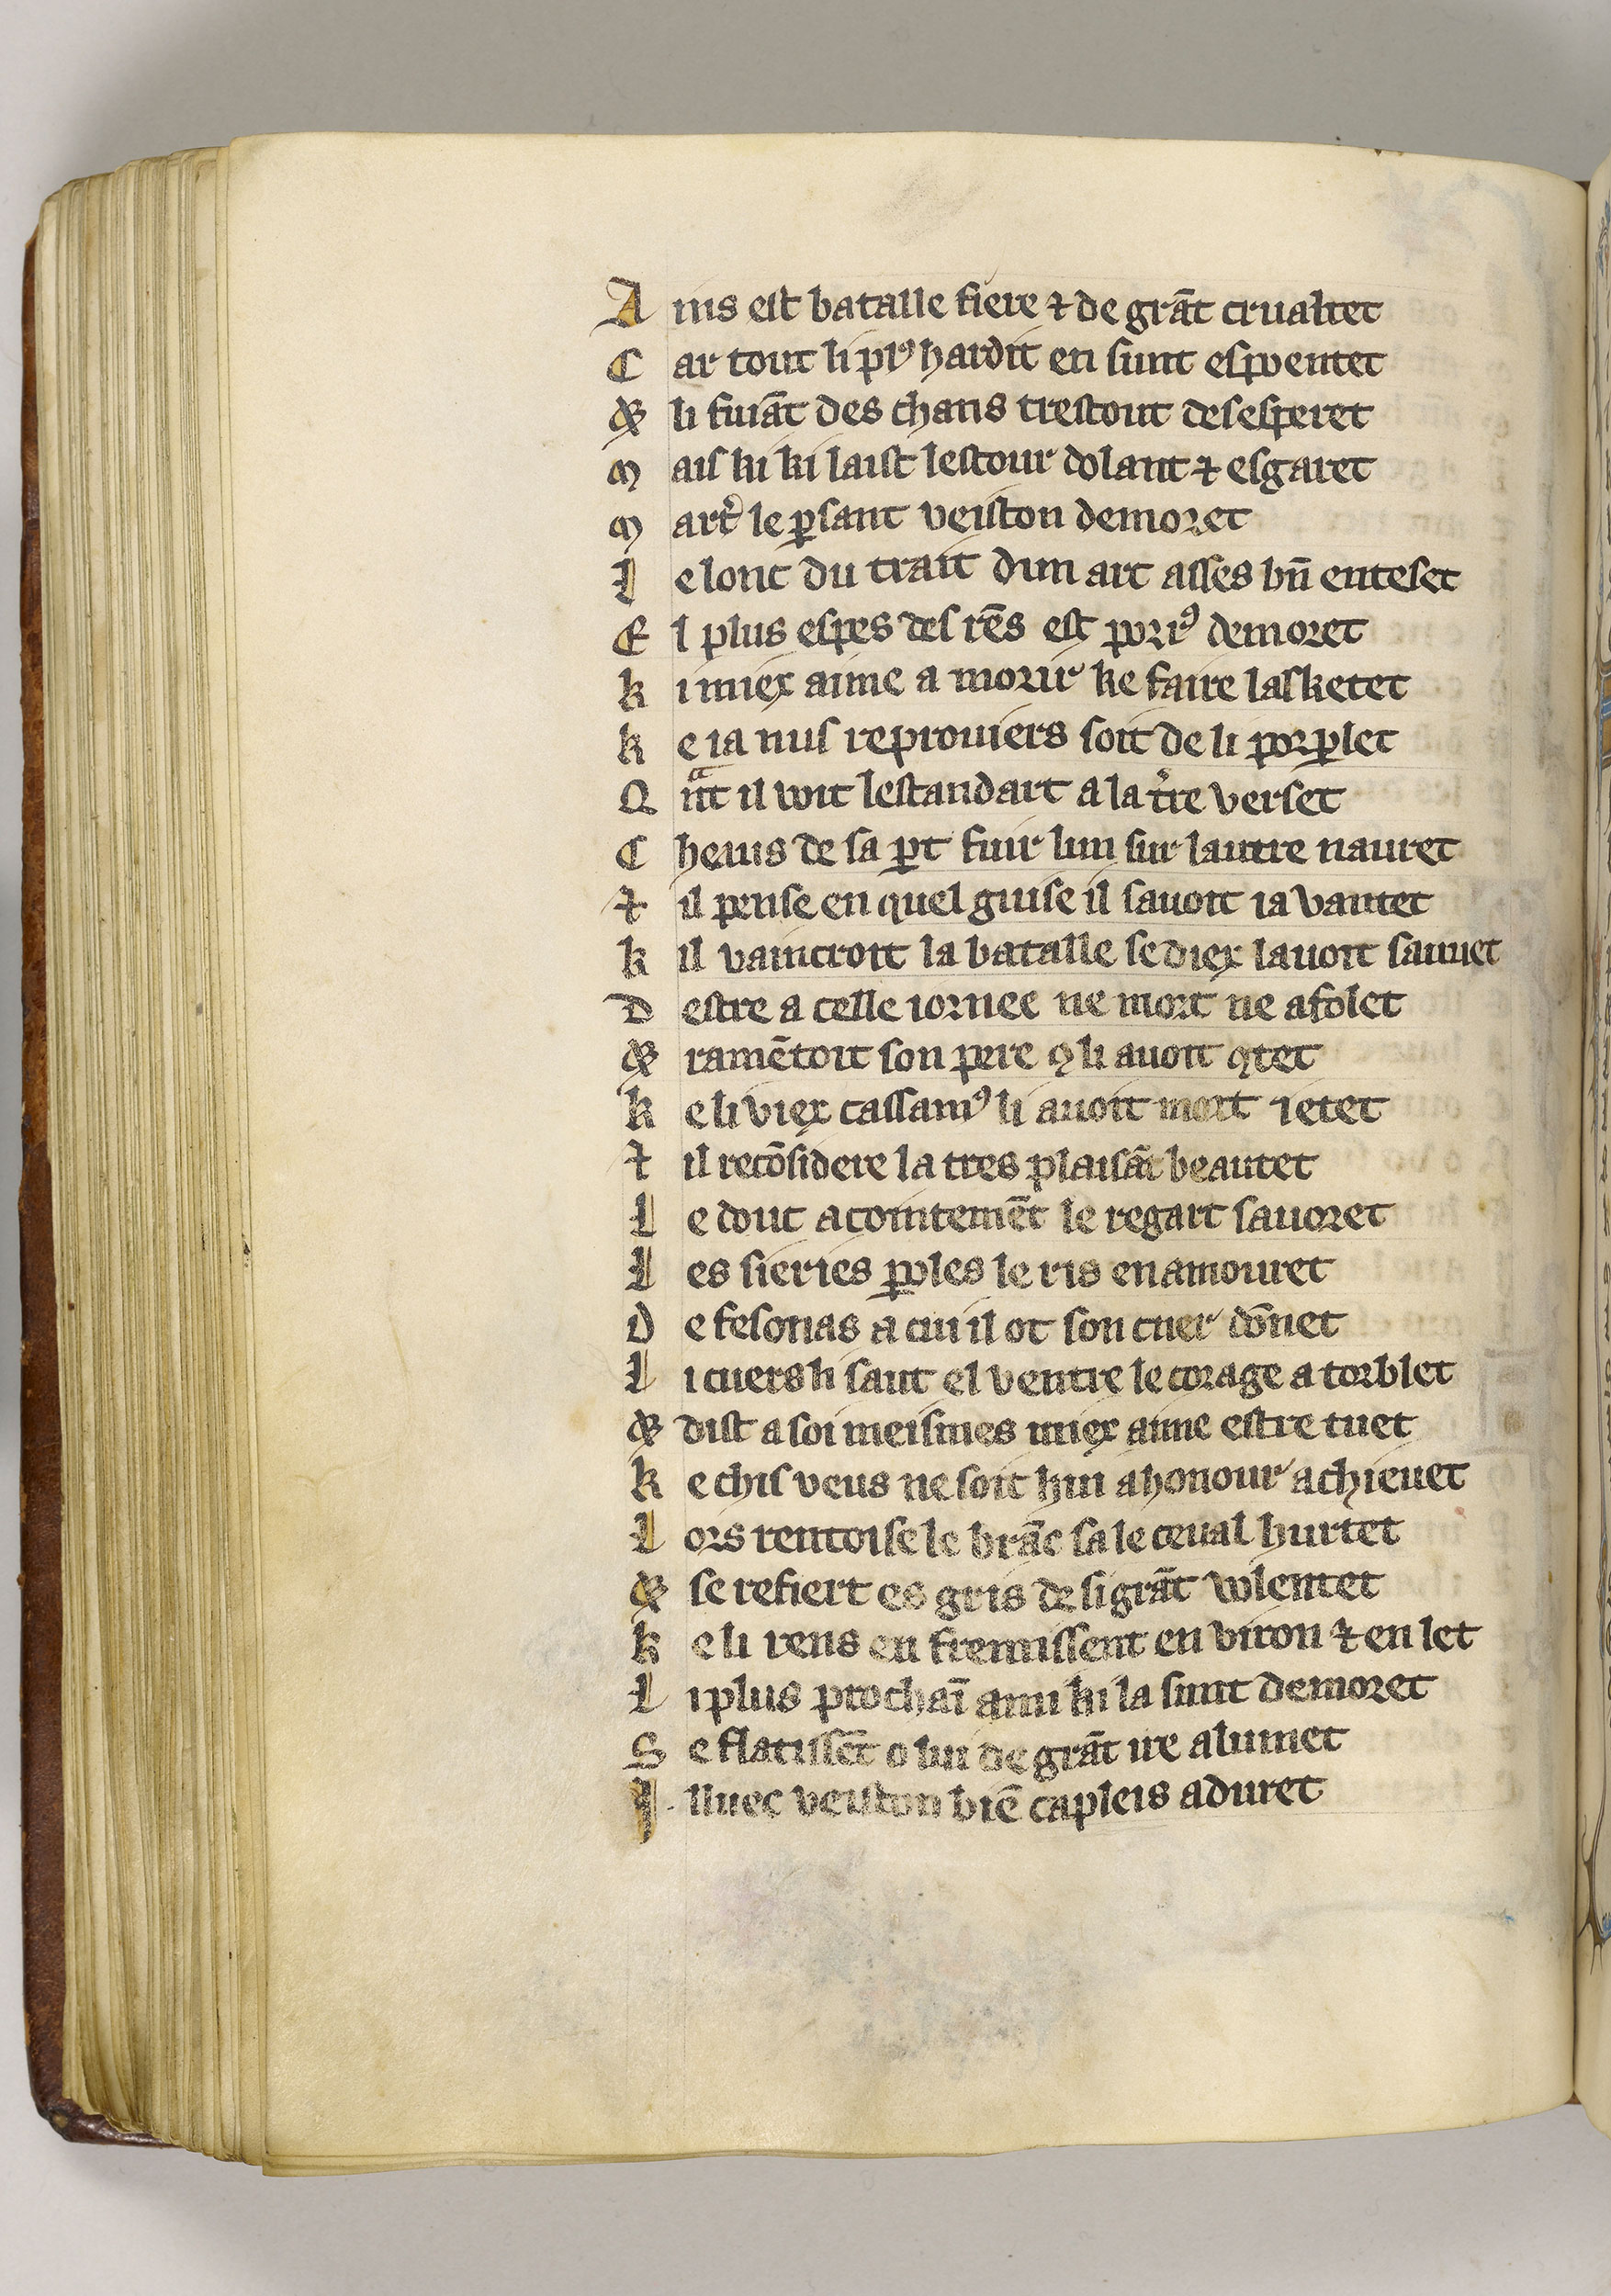 A ins est batalle fiere ⁊ de grāt crualtet
C ar tout li plꝰ hardit en sunt espoentet
& li fuiāt des chans trestout desesperet
M ais ki ki laist lestour dolant ⁊ esgaret
M art̉ le ꝑsant veiston demoret
L e lonc du trait dun arc asses bn̄ enteset
E l plus espes des rēs est porrꝰ demoret
K i miex aime a morir ke faire lasketet
K e ia nus reprouiers soit de li por ꝑlet
Q ᵃnt il voit lestandart a la t̉re verset
C heaus de sa ꝑt fuir lun sur lautre nauret
⁊ il pense en quel guise il sauoit ia vantet
K il vaincroit la batalle se diex lauoit sauuet
D estre a celle iornee ne mort ne afolet
& ramētoit son pere ꝗ li auoit ꝯtet
K e li viex cassamꝰ li auoit mort ietet
⁊ il recōsidere la tres plaisāt beautet
L e douc acointemēt le regart sauoret
L es sieries ꝑoles le ris enamouret
D e fesonas a cui il ot son cuer dōnet
L i cuers li saut el ventre le corage a torblet
& dist a soi meismes miex aime estre tuet
K e chis veus ne soit hui a honour achieuet
L ors rentoise le brāc sa le ceual hurtet
& se refiert es gris de si grāt volentet
K e li rens en fremissent en viron ⁊ en let
L i plus prochaī ami ki la sunt demoret
S e flatissēt o lui de grāt ire alumet
I lluec veiston biē capleis aduret